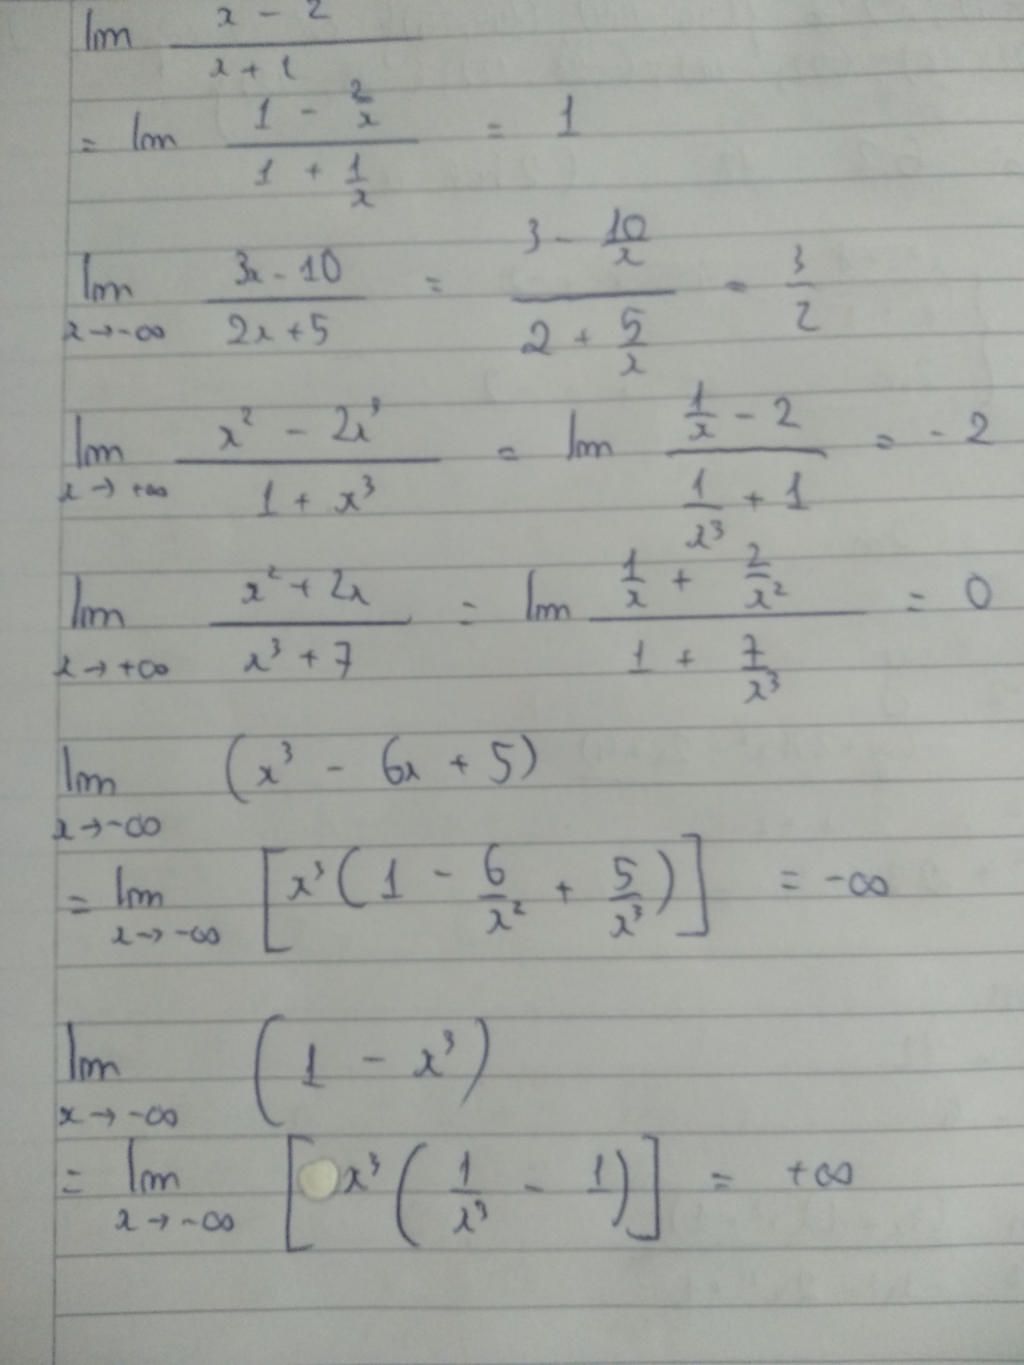 lim (x - 2)/(x + 1)
= lim (1 - 2/x)/(1 + 1/x) = 1
lim x→-∞ (3x - 10)/(2x + 5) = (3 - 10/x)/(2 + 5/x) = 3/2
lim x→+∞ (x² - 2x³)/(1 + x³) = lim (1/x - 2)/(1/x³ + 1) = -2
lim x→+∞ (x² + 2x)/(x³ + 7) = lim (1/x + 2/x²)/(1 + 7/x³) = 0
lim x→-∞ (x³ - 6x + 5)
= lim x→-∞ [x³(1 - 6/x² + 5/x³)] = -∞
lim x→-∞ (1 - x³)
= lim x→-∞ [x³(1/x³ - 1)] = +∞